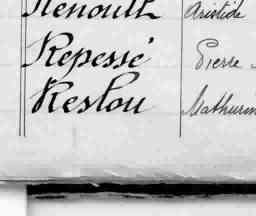 Renoult Aristide
Repessé Pierre
Reslou Mathurin